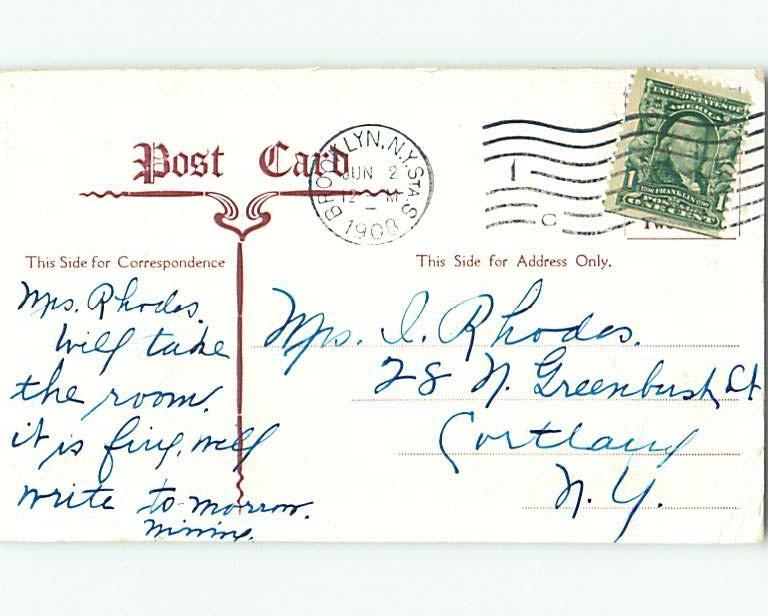 Post Card
BROOKLYN, N.Y. STA. S.
JUN 2
12 - M
1908
1
C
UNITED STATES OF
AMERICA
1 FRANKLIN 1
ONE CENT
This Side for Correspondence
This Side for Address Only.
Mrs. Rhodes.
Will take
the room.
it is fine, will
write to-morrow.
Mrs. I. Rhodes.
28 N. Greenbush St
Cortland
N. Y.